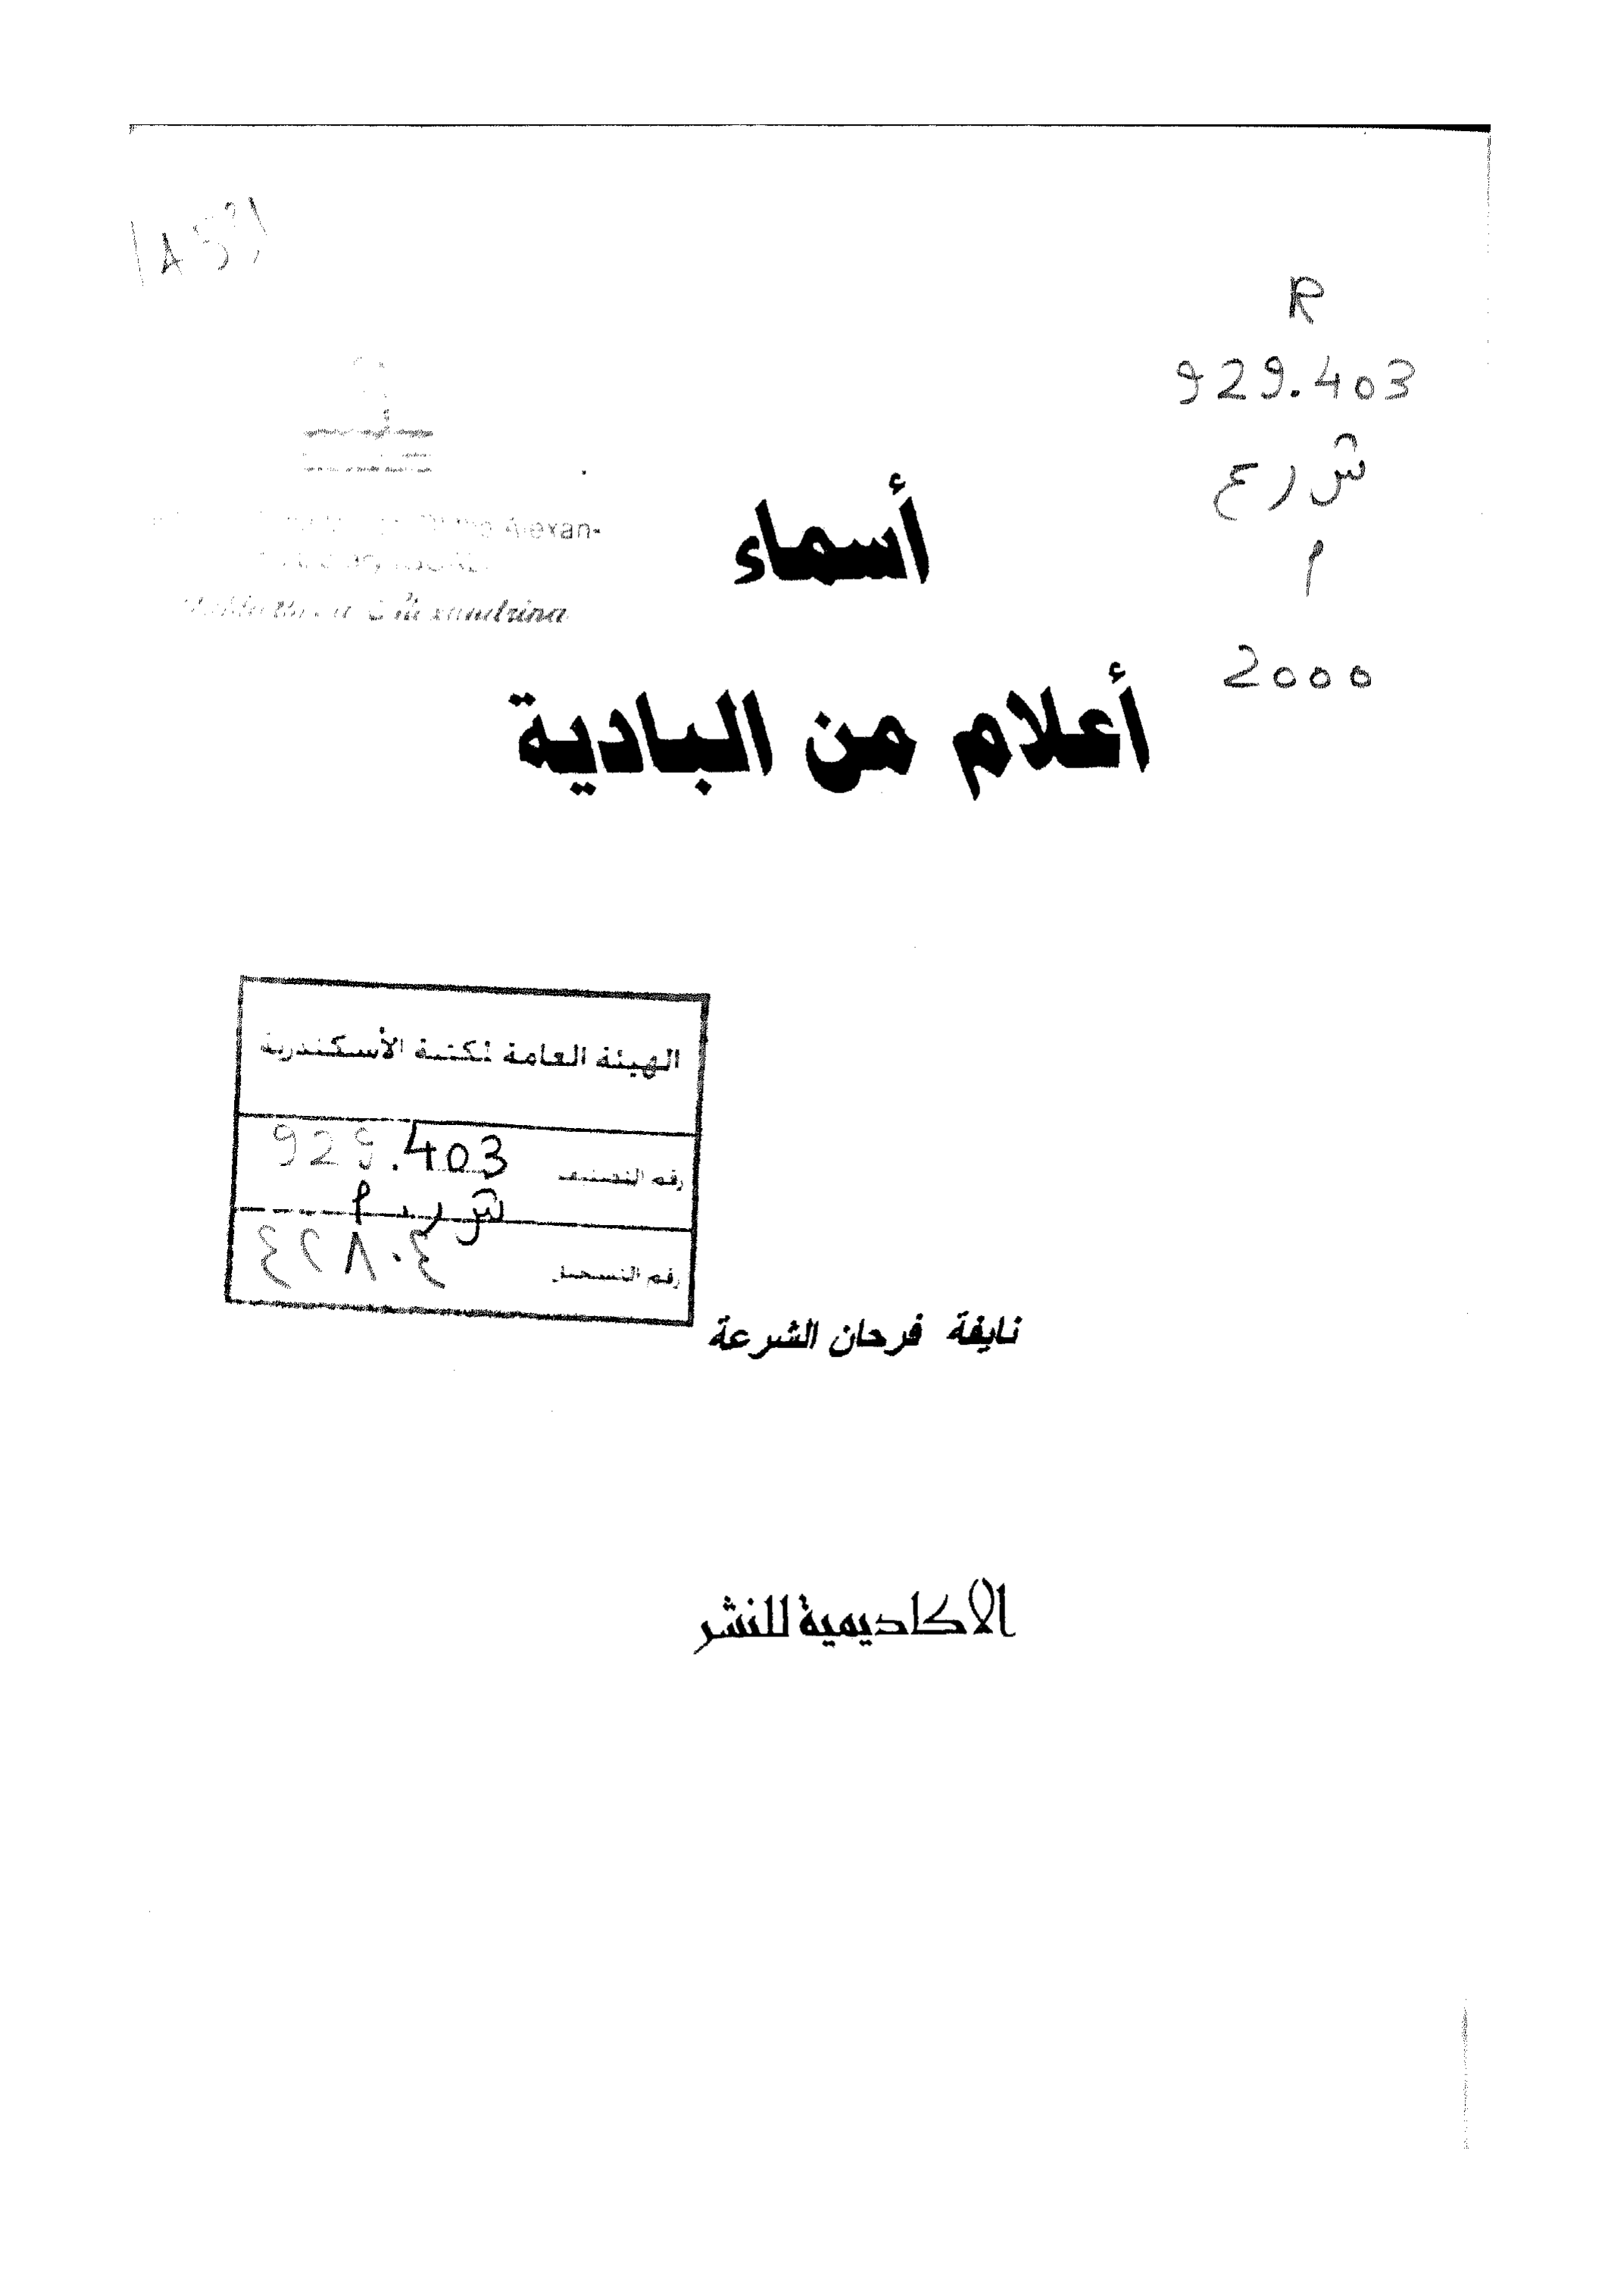 R
929.403
ش رع
م
2000
Alexan-
أسماء
أعلام من البادية
الهيئة العامة لمكتبة الأسكندرية
رقم التصنيف 929.403
ش ر. م
رقم التسجيل ٤٢٨٠٤
نايفة فرحان الشرعة
الاكاديمية للنشر